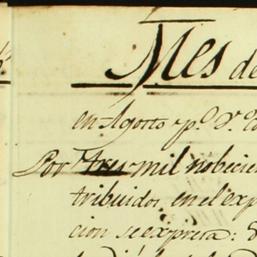 Mes de
en Agosto p.º D.º
Por tres mil nobecien
tribuidos, en el exp
cion se expresa: